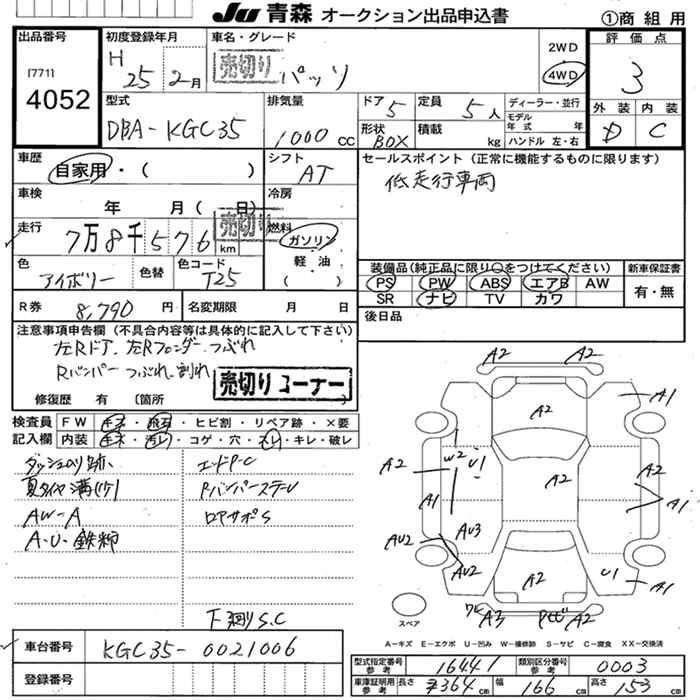 JU 青森 オークション出品申込書 ①商組用
出品番号 初度登録年月 車名・グレード 評価点
[771] H 25 2月 売切り パッソ 2WD 4WD 3
4052
型式 排気量 ドア 5 定員 5人 ディーラー・並行 外装 内装
DBA-KGC35 1000cc 形状 BOX 積載 kg モデル年式 年 ハンドル 左・右 D C
車歴 自家用・( ) シフト AT セールスポイント (正常に機能するものに限ります)
低走行車両
車検 年 月( 日) 冷房
走行 7万8千576km 売切り 燃料 ガソリン 軽油 ( )
色 アイボリー 色替 色コード T25
装備品(純正品に限り○をつけてください) 新車保証書
PS PW ABS エアB AW 有・無
SR ナビ TV カワ
R券 8,790円 名変期限 月 日 後日品
注意事項申告欄 (不具合内容等は具体的に記入して下さい)
左Rドア、左Rフェンダーつぶれ
Rバンパーつぶれ、割れ
売切りコーナー
修復歴 有 (箇所 )
検査員記入欄 FW キズ・飛石・ヒビ割・リペア跡・×要
内装 キズ・汚レ・コゲ・穴・スレ・キレ・破レ
ダッシュのり跡、 エンドP-C
夏タイヤ溝 RバンパーステーU
AW-A ロアサポS
A・U・鉄粉
下廻りS.C
車台番号 KGC35-0021006
登録番号
A2 A2 A1
A2 W2 U1 A2 A2
A1 A1
AU2 AU3
AU2 A2 U1 A1
ワレ A3 A2
スペア
A-キズ E-エクボ U-凹み W-補修跡 S-サビ C-腐食 XX-交換済
型式指定番号 参考 16441 類別区分番号 参考 0003
車庫証明用 参考 長さ 364cm 幅 166cm 高さ 153cm